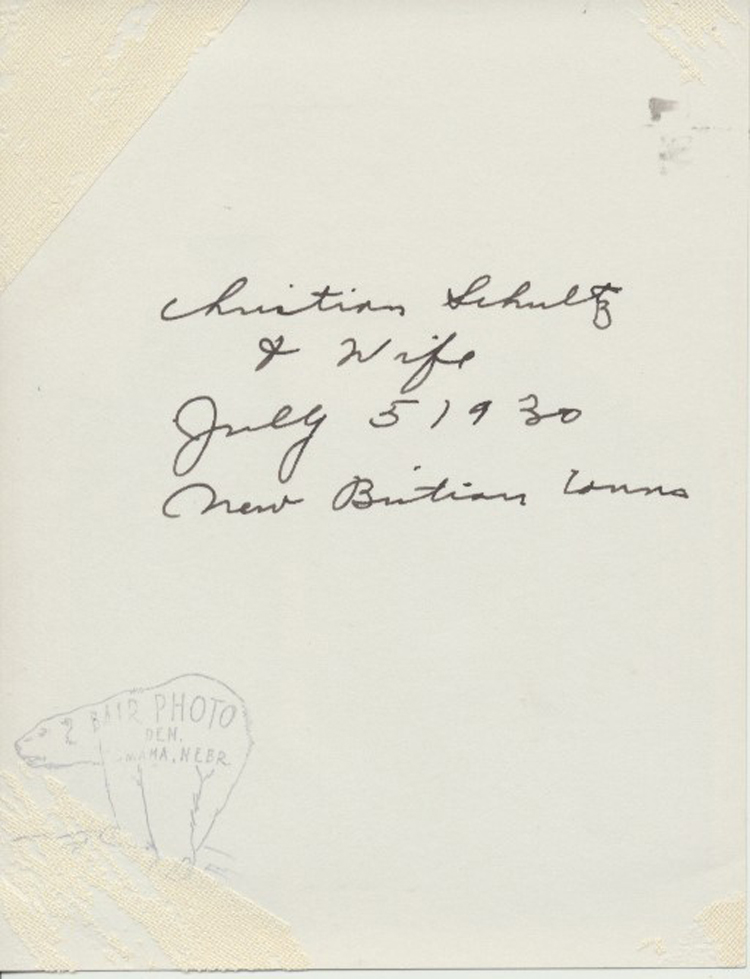 Christian Schultz
& Wife
July 5 1930
New Britian Conns
BAIR PHOTO
DEN.
OMAHA, NEBR